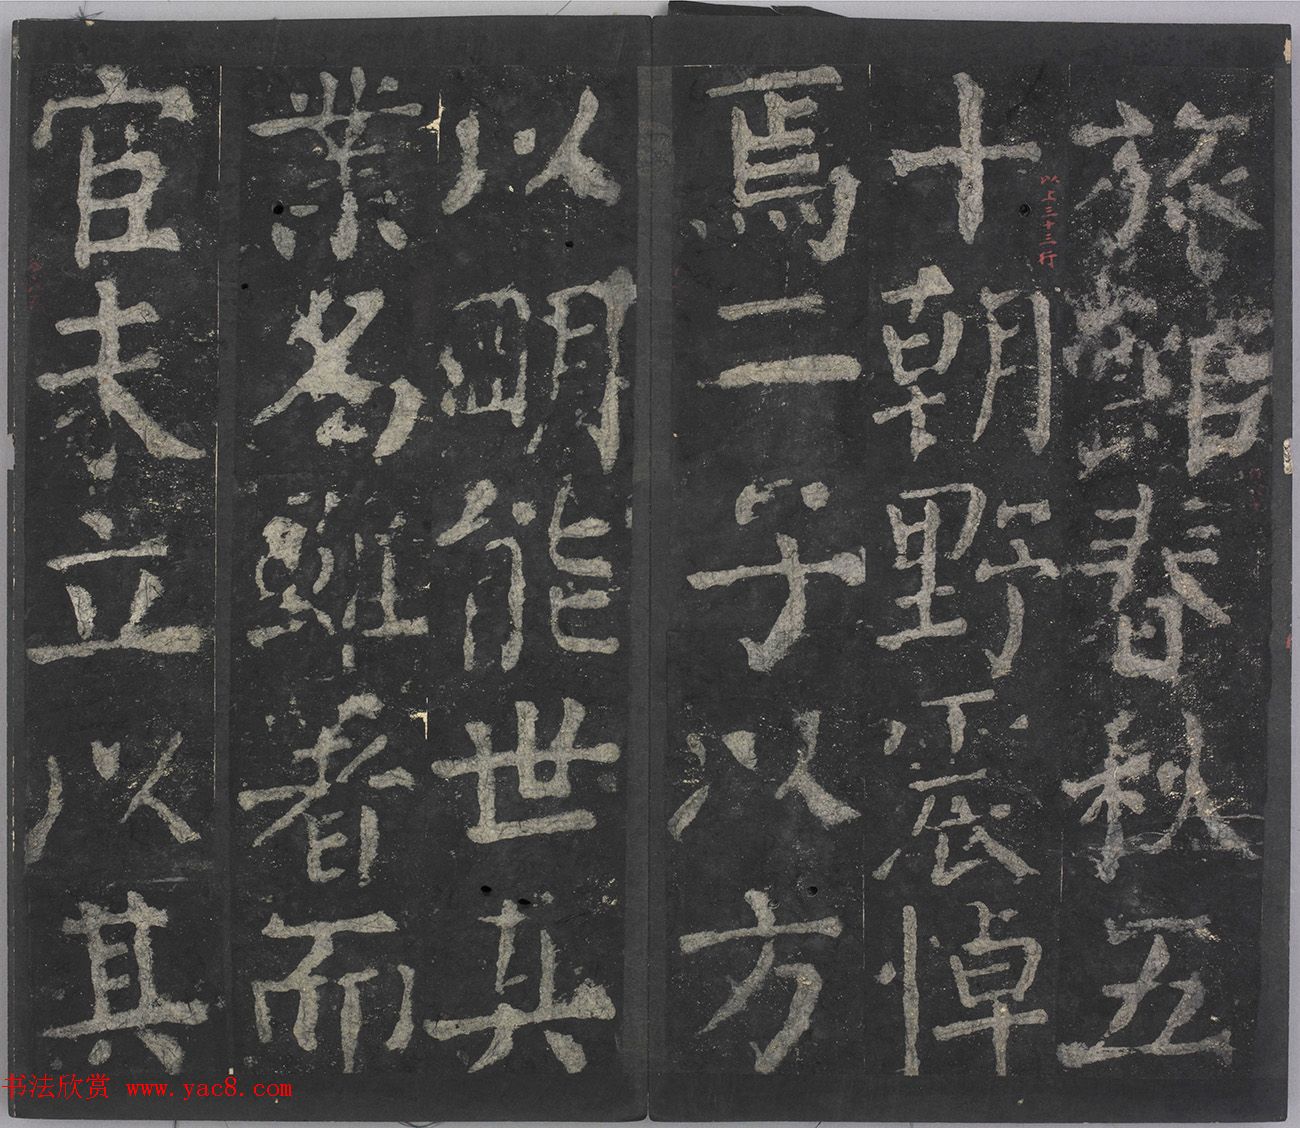 旅館春秋五
十朝野震悼
以上三十三行
焉二子以方
以明能世其
業名雖著而
官未立以其
书法欣赏 www.yac8.com